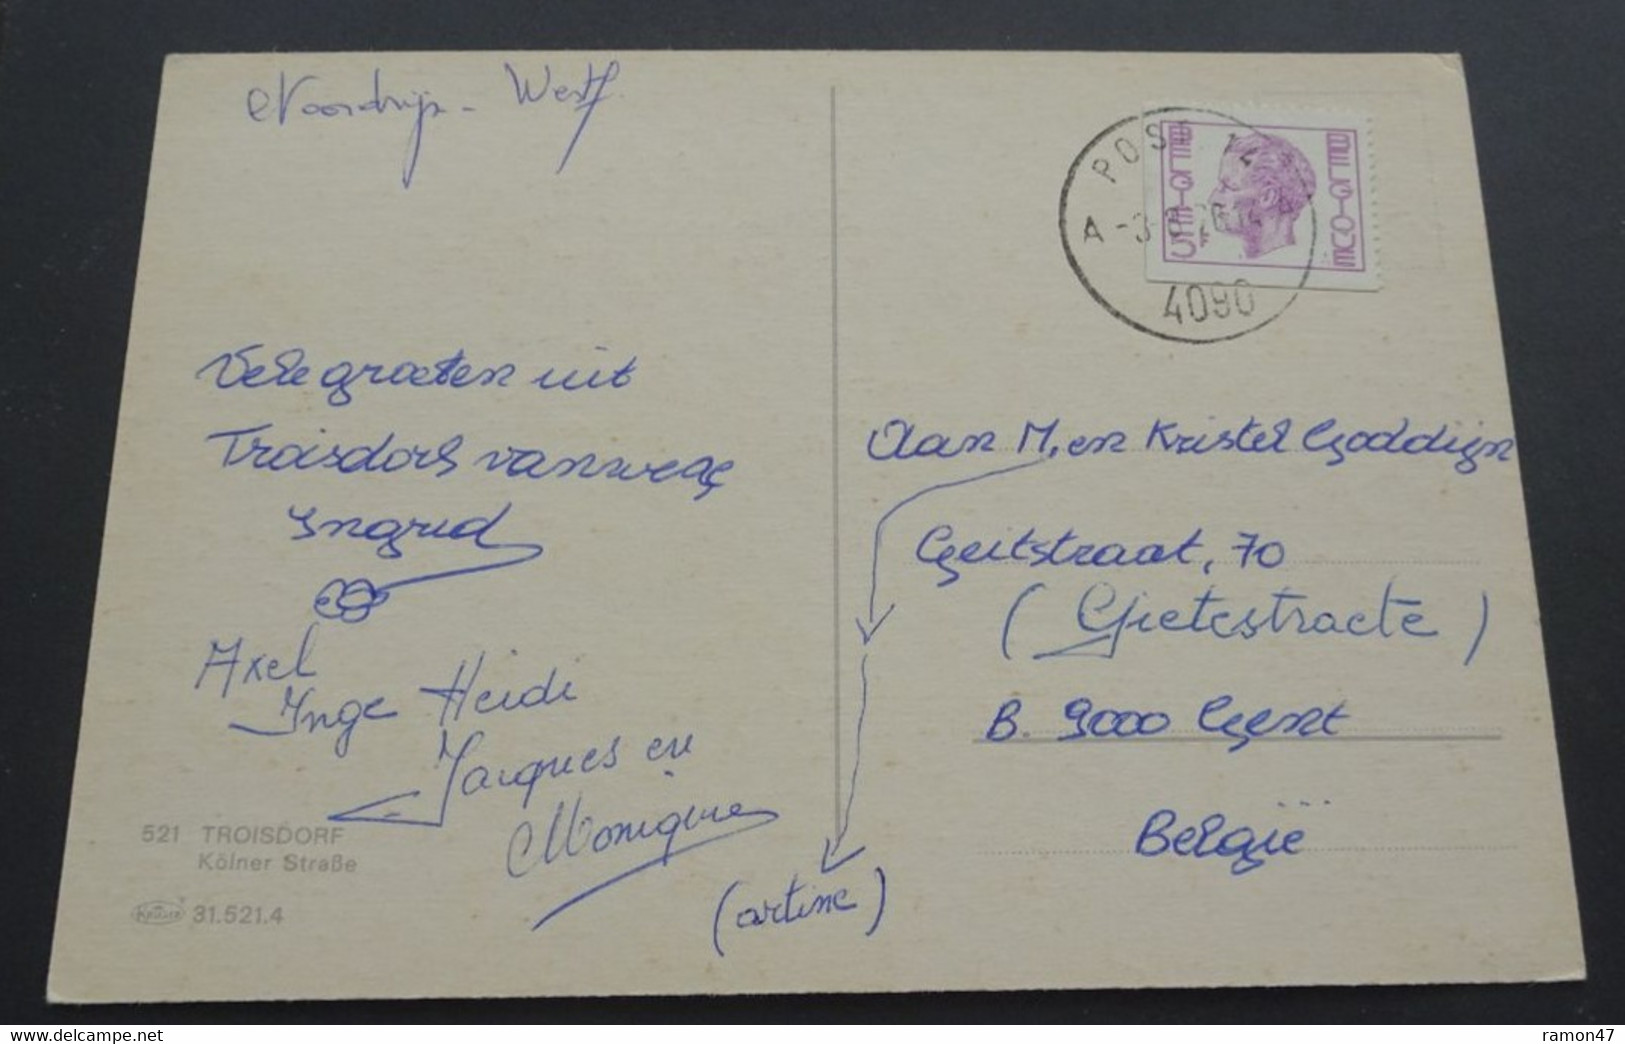 Noordrijn - Westf.
Vele groeten uit
Troisdorf vanwege
Ingrid
Axel
Inge Heidi
Jacques en
Monique
521 TROISDORF
Kölner Straße
Krüger 31.521.4
POST
BELGIE 5F BELGIQUE
4090
Aan M. en Kristel Goddijn
Geitstraat, 70
(Gietestraete)
B. 9000 Gent
België
(artine)
delcampe.net
ramon47